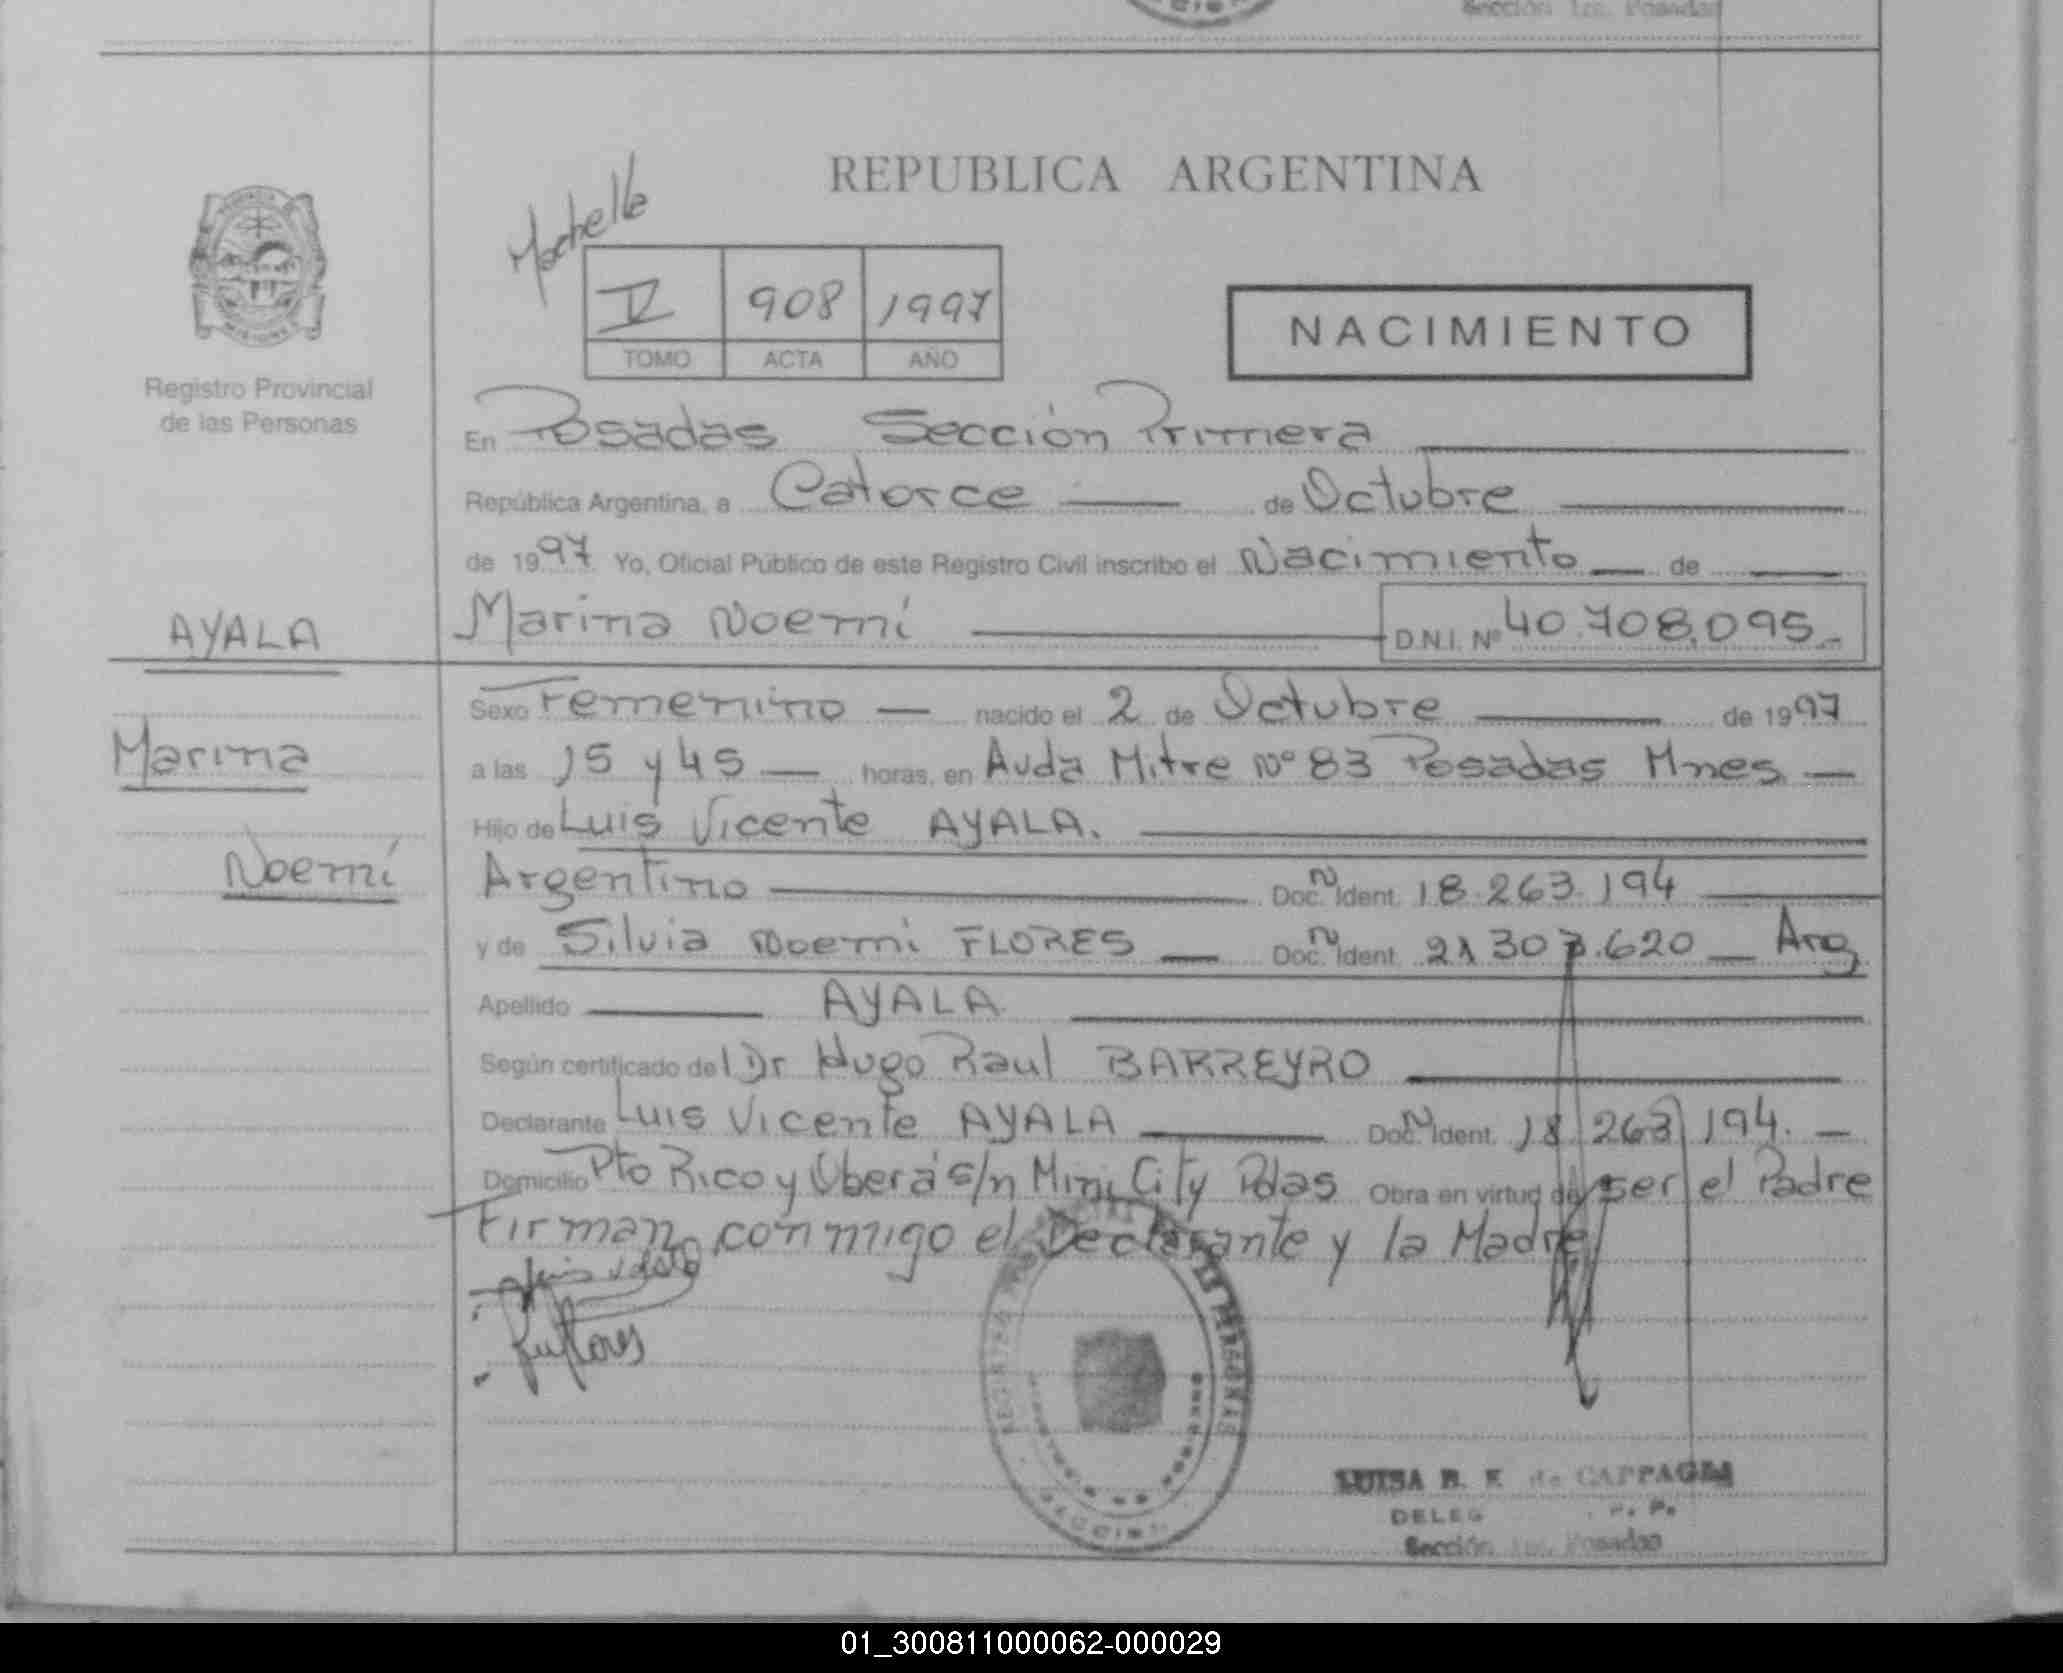 Sección 1ra. Posadas
REPUBLICA ARGENTINA
V 908 1997
TOMO ACTA AÑO
NACIMIENTO
Registro Provincial
de las Personas
En Posadas Sección Primera
República Argentina, a Catorce de Octubre
de 1997 Yo, Oficial Público de este Registro Civil inscribo el Nacimiento de
AYALA
Marina Noemí D.N.I. Nº 40.708.095.-
Sexo Femenino nacido el 2 de Octubre de 1997
Marina
a las 15 y 45 horas, en Avda Mitre Nº 83 Posadas Mnes
Hijo de Luis Vicente AYALA.
Noemí
Argentino Doc. N Ident. 18.263.194
y de Silvia Noemi FLORES Doc. N Ident. 21 307.620 Arg
Apellido AYALA
Según certificado del Dr Hugo Raul BARREYRO
Declarante Luis Vicente AYALA Doc. N Ident. 18 263 194.
Domicilio Pto Rico y Oberá s/n Mini City Pdas Obra en virtud de ser el Padre
Firman conmigo el Declarante y la Madre
LUISA B. F. de CAPPAGLI
DELEG R. P.
Sección 1ra. Posadas
01_300811000062-000029